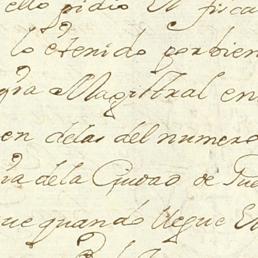 ello pidio el fisca
lo etenido porbien
gra Magistral en
en delas del numero
ra dela Ciudad de Pue
que quando llegue El